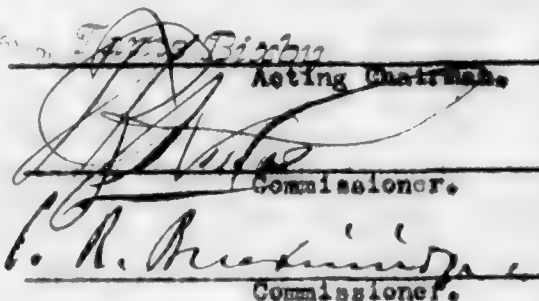 Tams Bixby
Acting Chairman.
Commissioner.
C. R. Breckinridge
Commissioner.